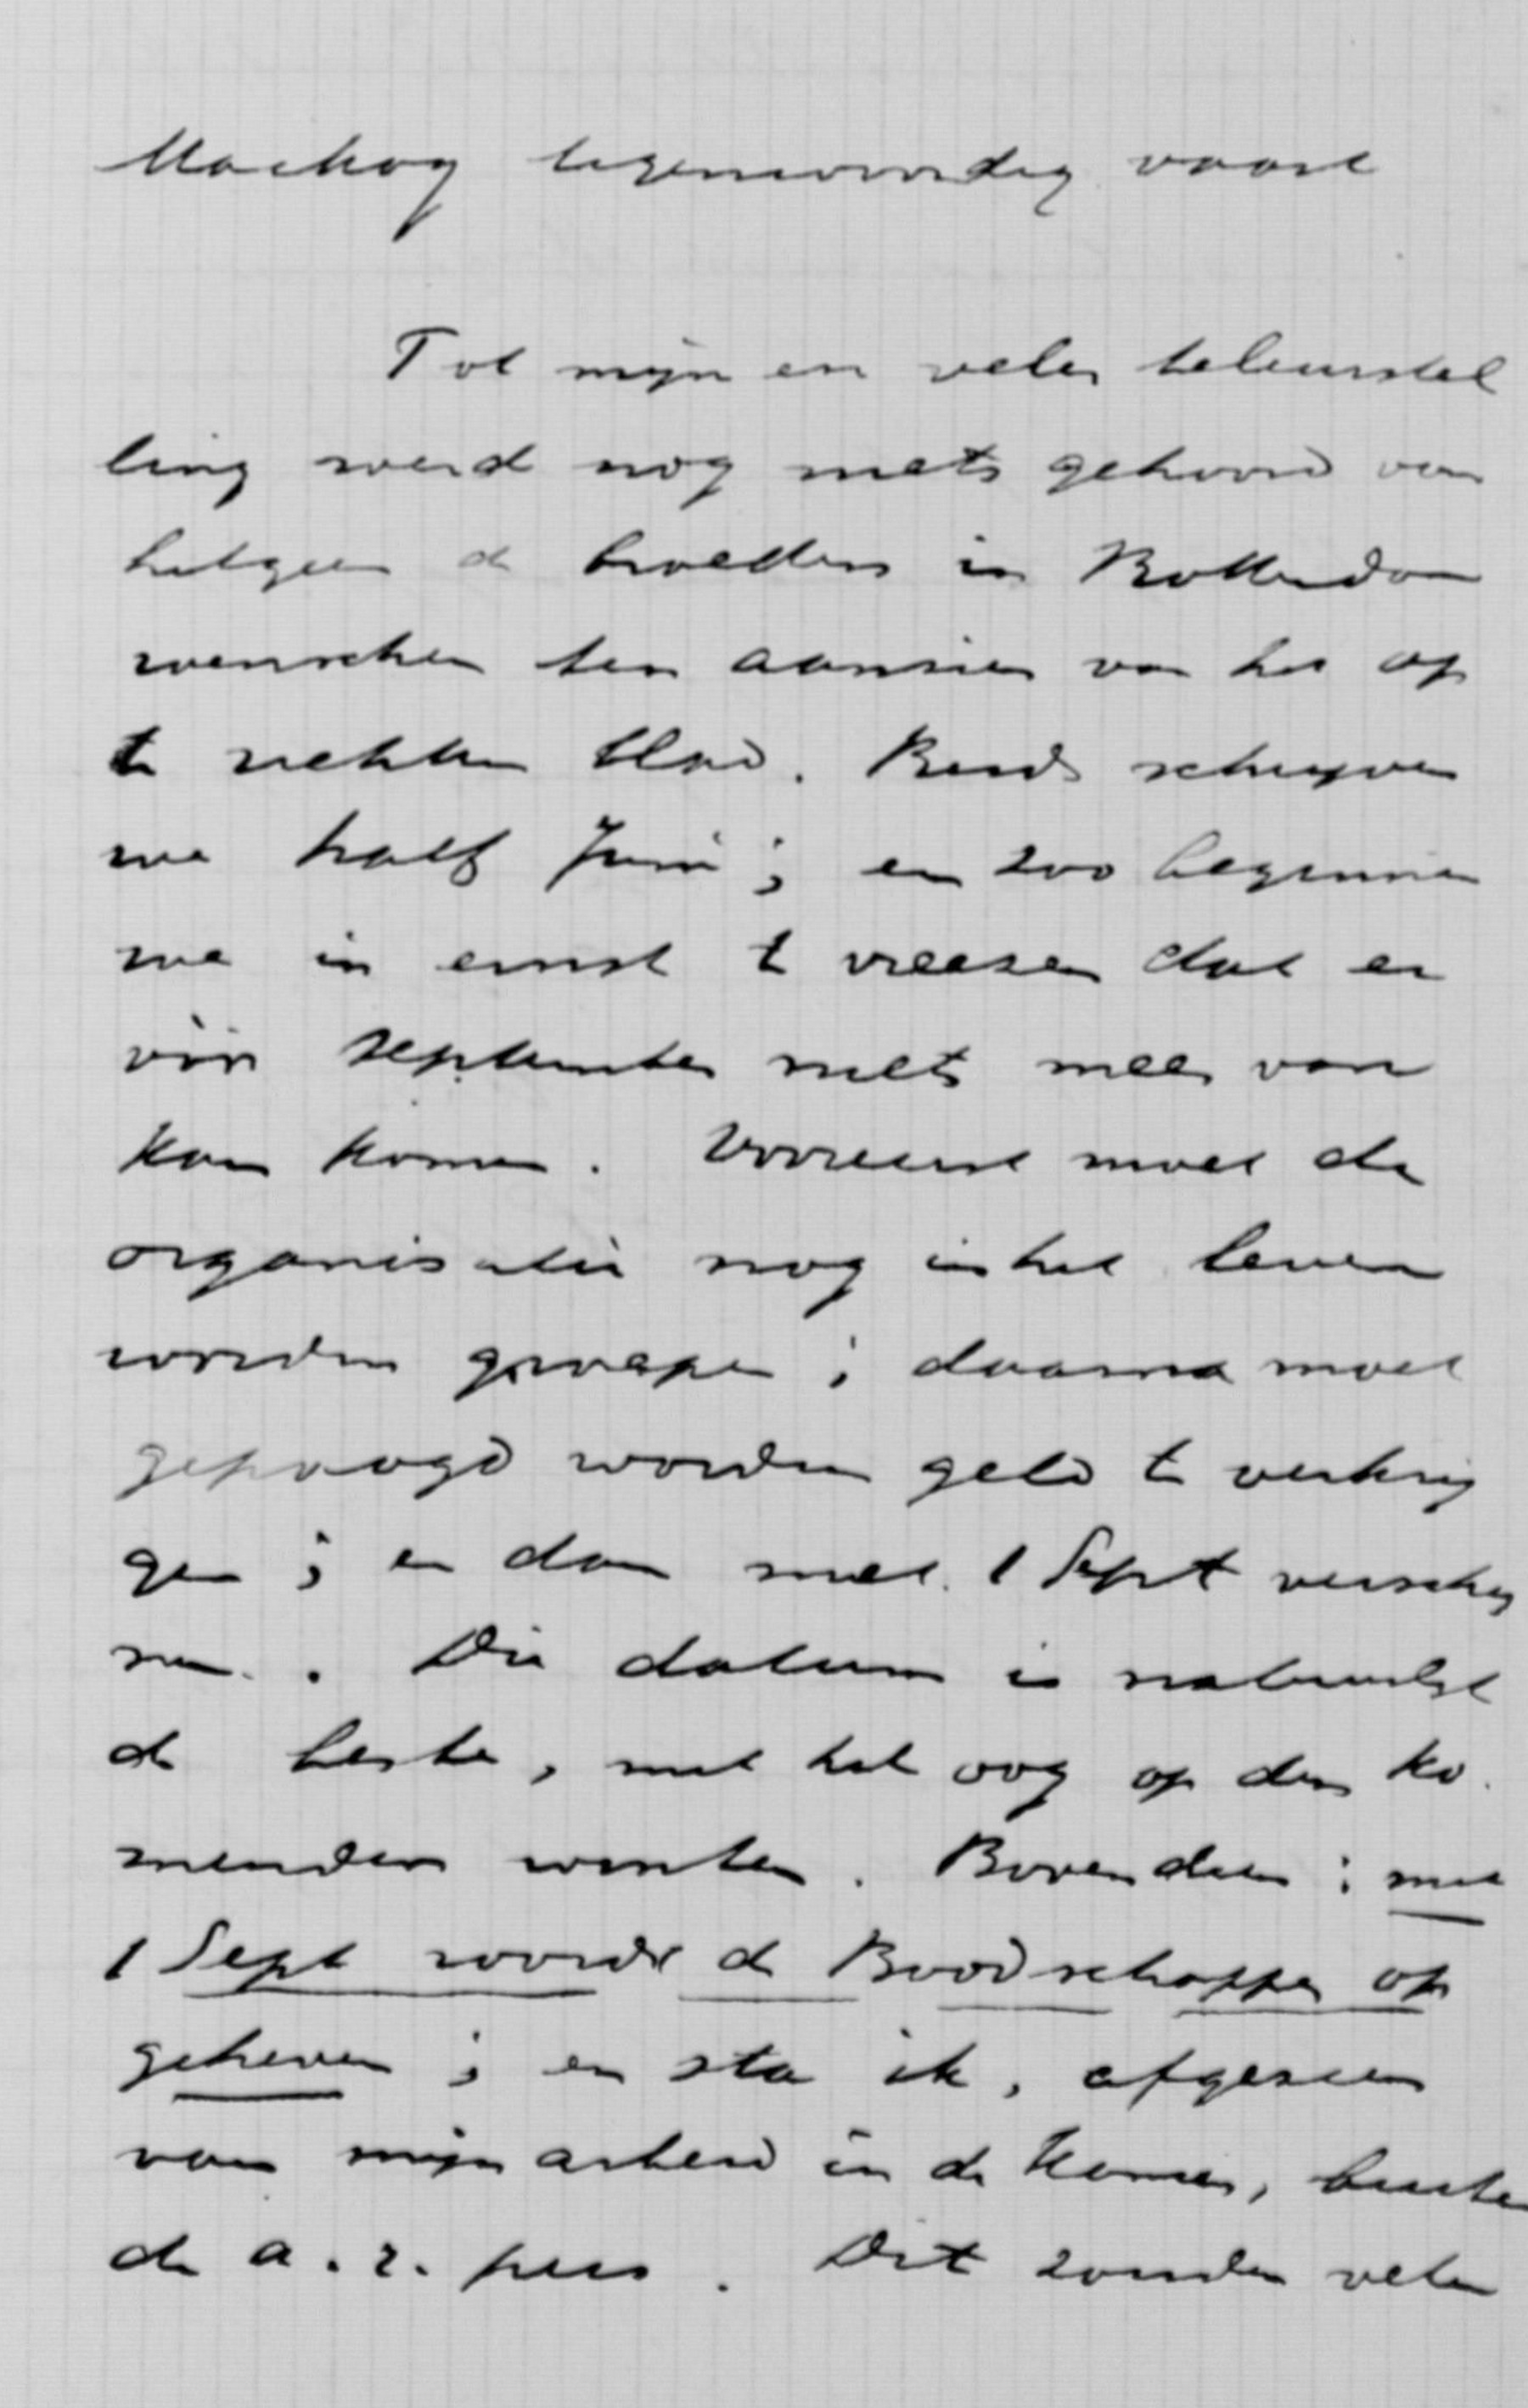 tegenwoordig
Tot mijn en veler teleurstel
ling werd nog niets gehoord van
hetgeen de broeders in Rotterdam
wenschen ten aanzien van het op
te richten blad. Reeds schrijven
we half Juni; en zoo beginnen
we in ernst te vreezen dat er
vóór september niets meer van
kan komen. Vooreerst moet de
organisatie nog in het leven
worden geroepen; daarna moet
gepoogd worden geld te verkrij
gen; en dan met 1 Sept verschij
nen. Die datum is natuurlijk
de beste, met het oog op den ko
menden winter. Bovendien: met
1 Sept wordt de Boodschapper op
geheven; en sta ik, afgezien
van mijn arbeid in de Kamer, buiten
de a. r. pers. Dit zouden velen